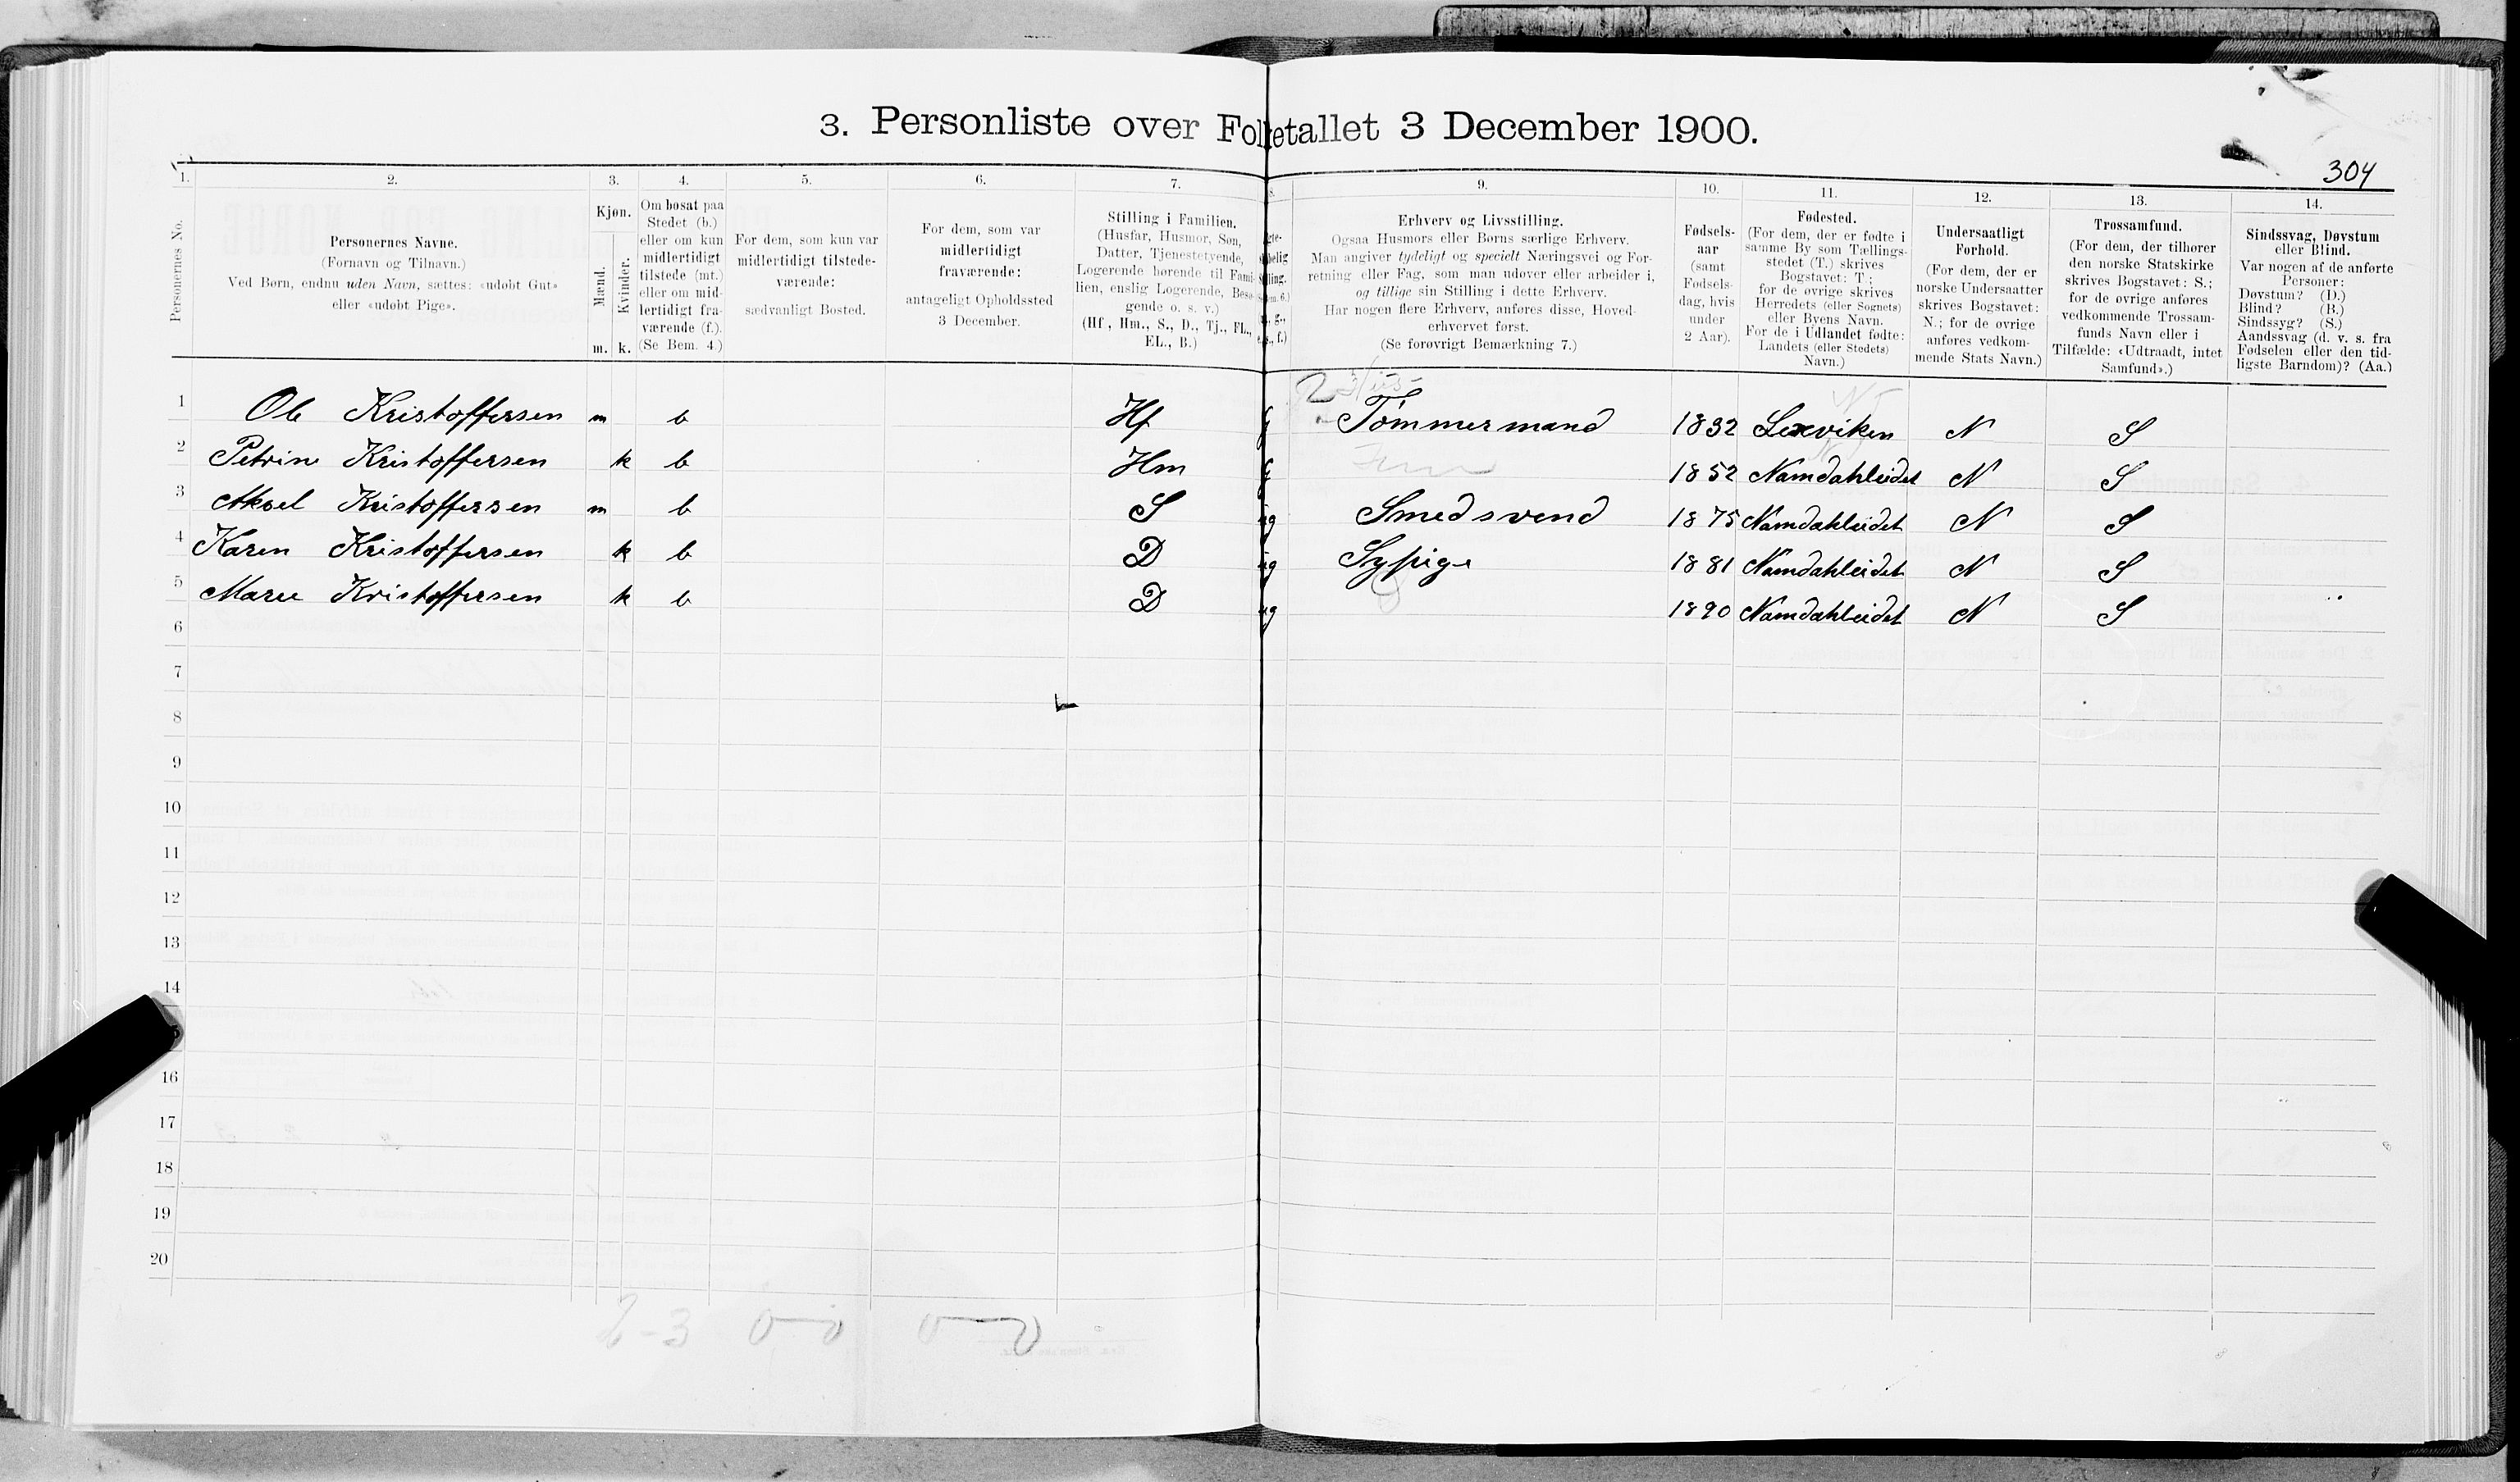 3. Personliste over Folketallet 3 December 1900.
304
1. 2. 3. 4. 5. 6. 7. 8. 9. 10. 11. 12. 13. 14.
Personernes No.
Personernes Navne.
(Fornavn og Tilnavn.)
Ved Børn, endnu uden Navn, sættes: «udøbt Gut»
eller «udøbt Pige».
Kjøn.
Mænd.
Kvinder.
m. k.
Om bosat paa
Stedet (b.)
eller om kun
midlertidigt
tilstede (mt.)
eller om mid-
lertidigt fra-
værende (f.).
(Se Bem. 4.)
For dem, som kun var
midlertidigt tilstede-
værende:
sædvanligt Bosted.
For dem, som var
midlertidigt
fraværende:
antageligt Opholdssted
3 December.
Stilling i Familien.
(Husfar, Husmor, Søn,
Datter, Tjenestetyende,
Logerende hørende til Fami-
lien, enslig Logerende, Besø-
gende o. s. v.)
(Hf., Hm., S., D., Tj., FL.,
EL., B.)
Erhverv og Livsstilling.
Ogsaa Husmors eller Børns særlige Erhverv.
Man angiver tydeligt og specielt Næringsvei og For-
retning eller Fag, som man udøver eller arbeider i,
og tillige sin Stilling i dette Erhverv.
Har nogen flere Erhverv, anføres disse, Hoved-
erhvervet først.
(Se forøvrigt Bemærkning 7.)
Fødsels-
aar
(samt
Fødsels-
dag, hvis
under
2 Aar).
Fødested.
(For dem, der er fødte i
samme By som Tællings-
stedet (T.) skrives
Bogstavet: T;
for de øvrige skrives
Herredets (eller Sognets)
eller Byens Navn.
For de i Udlandet fødte:
Landets (eller Stedets)
Navn.)
Undersaatligt
Forhold.
(For dem, der er
norske Undersaatter
skrives Bogstavet:
N.; for de øvrige
anføres vedkom-
mende Stats Navn.)
Trossamfund.
(For dem, der tilhører
den norske Statskirke
skrives Bogstavet: S.;
for de øvrige anføres
vedkommende Trossam-
funds Navn eller i
Tilfælde: «Udtraadt, intet
Samfund».)
Sindssvag, Døvstum
eller Blind.
Var nogen af de anførte
Personer:
Døvstum? (D.)
Blind? (B.)
Sindssyg? (S.)
Aandssvag (d. v. s. fra
Fødselen eller den tid-
ligste Barndom)? (Aa.)
1 Ole Kristoffersen m b Hf g Tømmermand 1832 Lexviken N S
2 Petrine Kristoffersen k b Hm g 1852 Namdahleidet N S
3 Aksel Kristoffersen m b S ug Smedsvend 1875 Namdahleidet N S
4 Karen Kristoffersen k b D ug Sypige 1881 Namdahleidet N S
5 Marie Kristoffersen k b D ug 1890 Namdahleidet N S
6
7
8
9
10
11
12
13
14
16
17
18
19
20
2-3 0-0 0-0